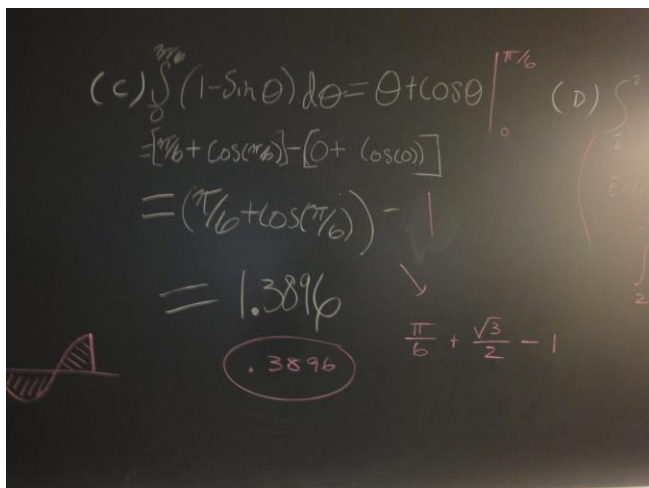 (C) ∫₀^{π/6} (1-Sinθ) dθ = θ+Cosθ |₀^{π/6}
=[π/6 + Cos(π/6)]-[0+ Cos(0))]
=(π/6+Cos(π/6)) - 1
= 1.3896
.3896
π/6 + √3/2 - 1
(D) ∫